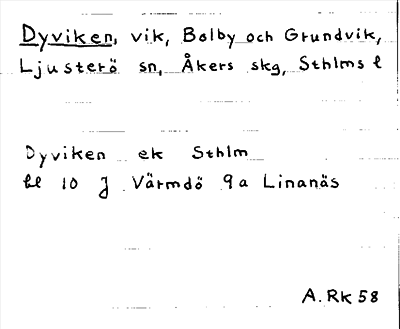 Dyviken, vik, Bolby och Grundvik,
Ljusterö sn, Åkers skg, Sthlms l
Dyviken ek Sthlm
bl 10 J Värmdö 9a Linanäs
A. Rk 58